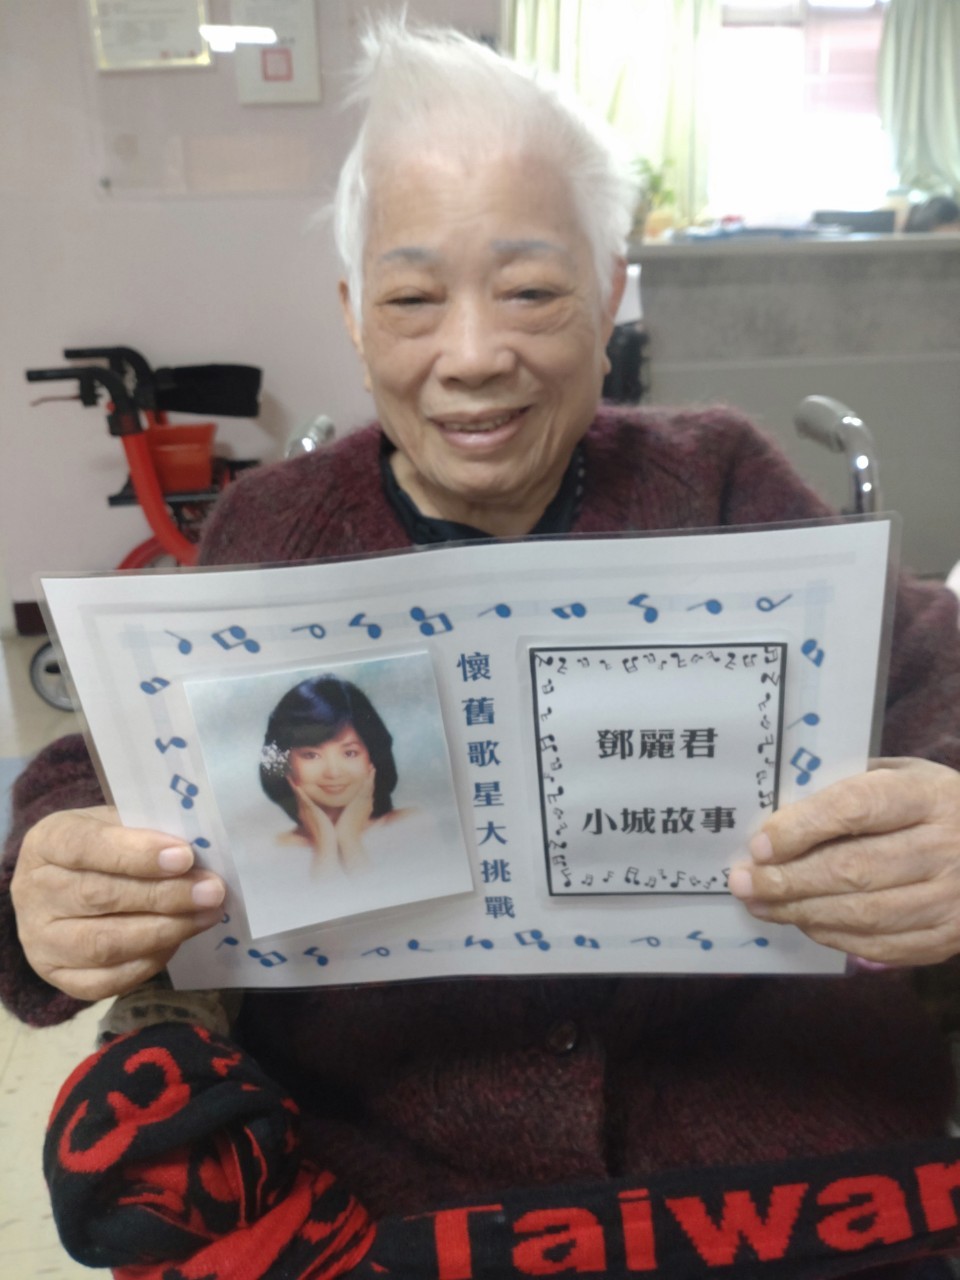 懷舊歌星大挑戰
鄧麗君
小城故事
3
Taiwan